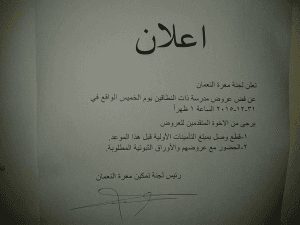 اعلان
تعلن لجنة معرة النعمان
عن فض عروض مدرسة ذات النطاقين يوم الخميس الواقع في
٣١-١٢-٢٠١٥ الساعة ١ ظهراً
يرجى من الاخوة المتقدمين للعروض
١-قطع وصل بمبلغ التأمينات الأولية قبل هذا الموعد.
٢-الحضور مع عروضهم والأوراق الثبوتية المطلوبة.
رئيس لجنة تمكين معرة النعمان